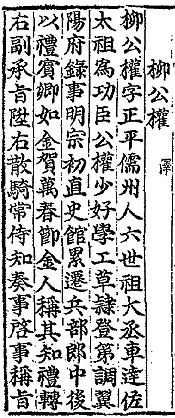 柳公權 澤
柳公權字正平儒州人六世祖大丞車達佐
太祖爲功臣公權少好學工草隷登第調翼
陽府錄事明宗初直史館累遷兵部郎中後
以禮賓卿如金賀萬春節金人稱其知禮轉
右副承旨陞右散騎常侍知奏事啓事稱旨